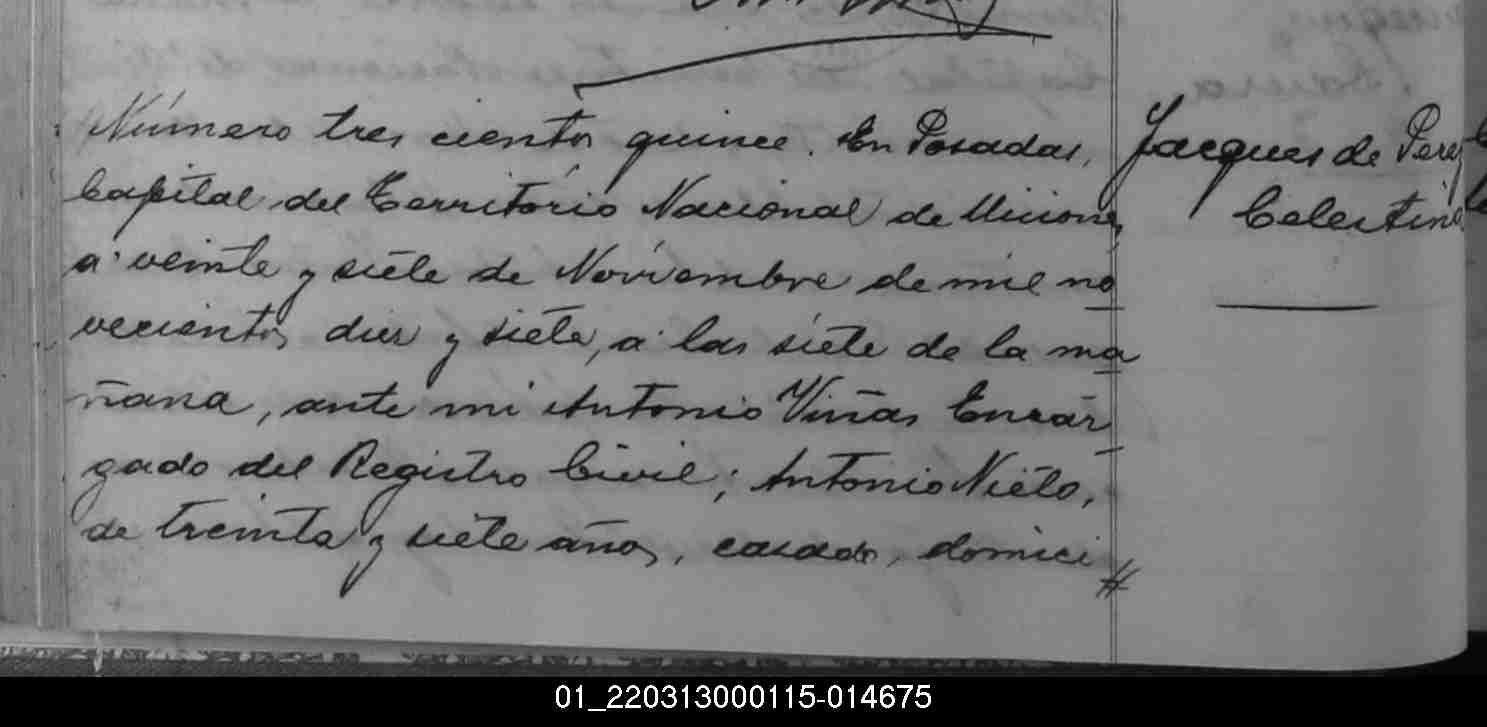 Número tres cientos quince. En Posadas,
Capital del Territorio Nacional de Misiones,
a veinte y siete de Noviembre de mil no
vecientos diez y siete, a las siete de la ma
ñana, ante mi Antonio Viñas Encar
gado del Registro Civil; Antonio Nieto,
de treinta y siete años, casado, domici
Jacques de Perez
Celestina
01_220313000115-014675